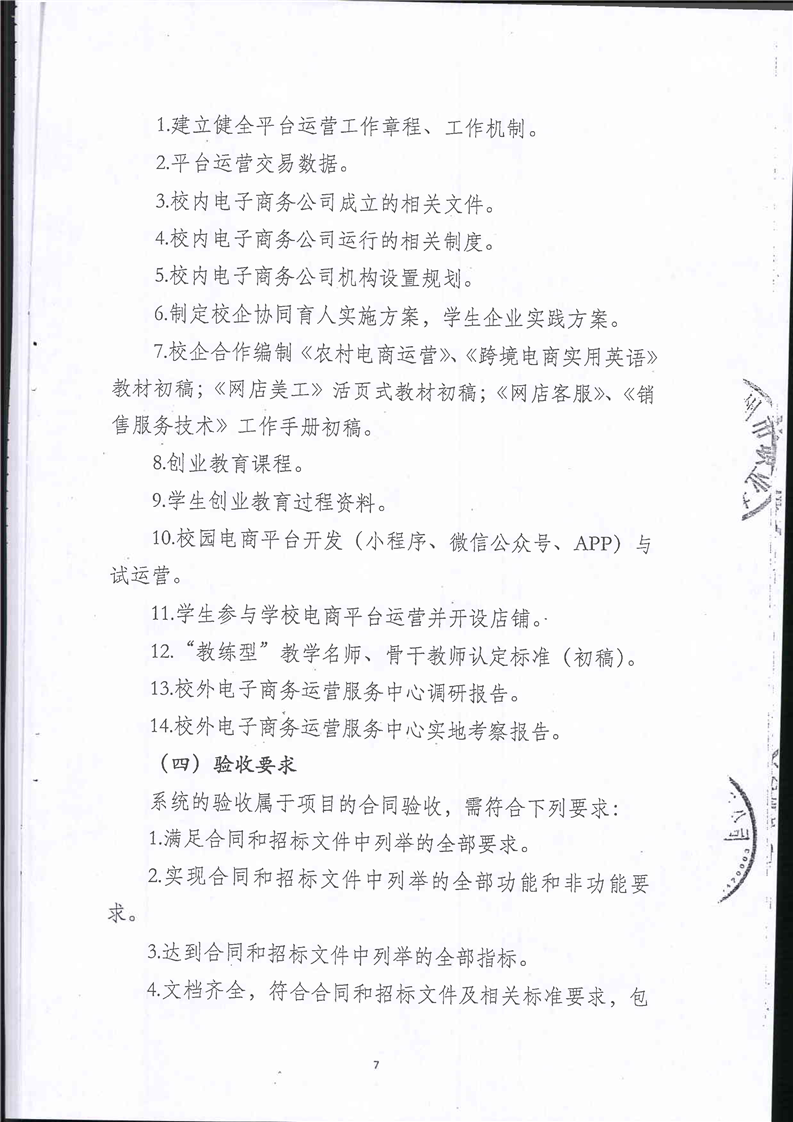 1.建立健全平台运营工作章程、工作机制。
2.平台运营交易数据。
3.校内电子商务公司成立的相关文件。
4.校内电子商务公司运行的相关制度。
5.校内电子商务公司机构设置规划。
6.制定校企协同育人实施方案，学生企业实践方案。
7.校企合作编制《农村电商运营》、《跨境电商实用英语》
教材初稿；《网店美工》活页式教材初稿；《网店客服》、《销
售服务技术》工作手册初稿。
8.创业教育课程。
9.学生创业教育过程资料。
10.校园电商平台开发（小程序、微信公众号、APP）与
试运营。
11.学生参与学校电商平台运营并开设店铺。
12.“教练型”教学名师、骨干教师认定标准（初稿）。
13.校外电子商务运营服务中心调研报告。
14.校外电子商务运营服务中心实地考察报告。
（四）验收要求
系统的验收属于项目的合同验收，需符合下列要求：
1.满足合同和招标文件中列举的全部要求。
2.实现合同和招标文件中列举的全部功能和非功能要
求。
3.达到合同和招标文件中列举的全部指标。
4.文档齐全，符合合同和招标文件及相关标准要求，包
7
州市
业
公司